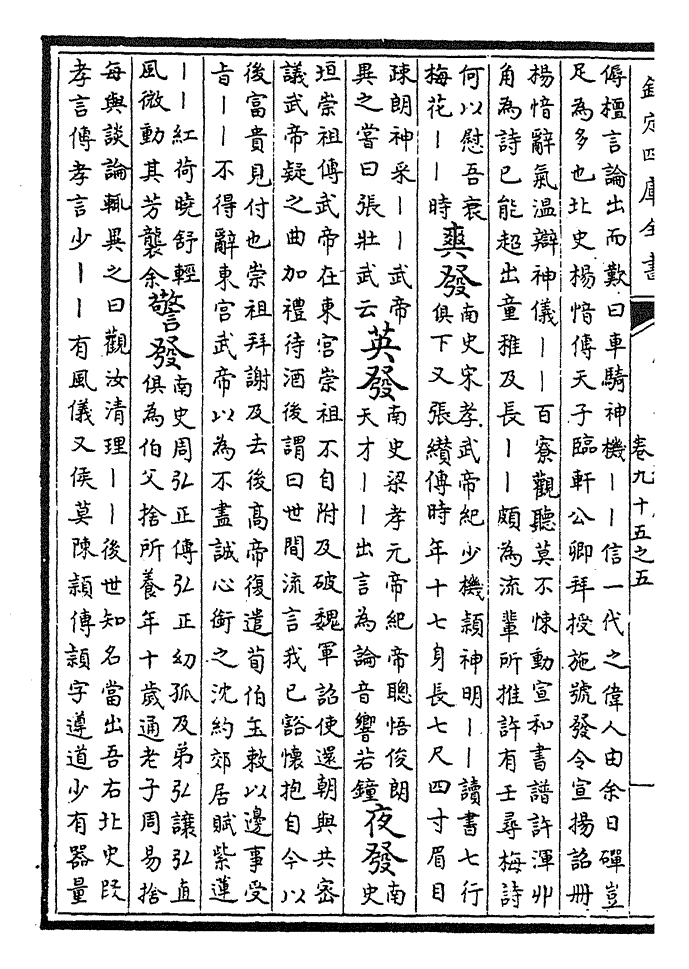 欽定四庫全書
卷九十五之五
傉檀言論出而歎曰車騎神機丨丨信一代之偉人由余日磾豈
足為多也北史楊愔傳天子臨軒公卿拜授施號發令宣揚詔冊
楊愔辭氣温辯神儀丨丨百寮觀聽莫不悚動宣和書譜許渾丱
角為詩已能超出童稚及長丨丨頗為流輩所推許有壬尋梅詩
何以慰吾衰
梅花丨丨時
爽發
南史宋孝武帝紀少機穎神明丨丨讀書七行
俱下又張纘傳時年十七身長七尺四寸眉目
疎朗神采丨丨武帝
異之嘗曰張壯武云
英發
南史梁孝元帝紀帝聰悟俊朗
天才丨丨出言為論音響若鐘
夜發
南
史
垣崇祖傳武帝在東宮崇祖不自附及破魏軍詔使還朝與共宻
議武帝疑之曲加禮待酒後謂曰世間流言我已豁懷抱自今以
後富貴見付也崇祖拜謝及去後髙帝復遣荀伯玉敕以邊事受
旨丨丨不得辭東宮武帝以為不盡誠心銜之沈約郊居賦紫蓮
丨丨紅荷曉舒輕
風微動其芳襲余
警發
南史周弘正傳弘正幼孤及弟弘讓弘直
俱為伯父捨所養年十歲通老子周易捨
每與談論輒異之曰觀汝清理丨丨後世知名當出吾右北史段
孝言傳孝言少丨丨有風儀又侯莫陳頴傳頴字遵道少有器量